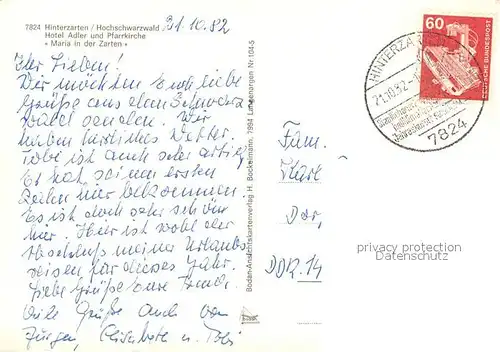 7824 Hinterzarten / Hochschwarzwald
Hotel Adler und Pfarrkirche
« Maria in der Zarten »
31.10.82
Ihr Lieben!
Wir möchten Euch liebe
Grüße aus dem Schwarz
wald senden. Wir
haben herrliches Wetter.
Tobi ist auch sehr artig
Er hat seinen ersten
Zahn hier bekommen
Es ist doch sehr schön
hier. Hier ist wohl der
Abschluß meiner Urlaubs
reisen für dieses Jahr.
Liebe Grüße Eure
Viele Grüße auch von
Jürgen, Elisabete u. Tobi
Bodan-Ansichtskartenverlag H. Bockelmann, 7994 Langenargen Nr. 104-5
60
DEUTSCHE BUNDESPOST
HINTERZA
21.10.82
7824
Fam.
Karl
Dor,
DDR. 14
privacy protection
Oldthing.de